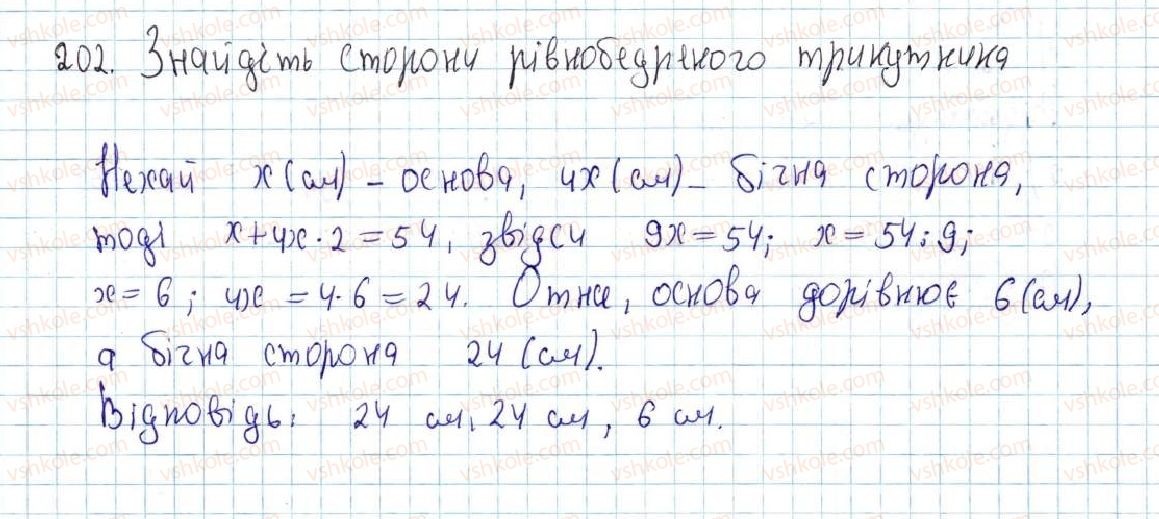 202. Знайдіть сторони рівнобедреного трикутника
Нехай x (см) – основа, 4x (см) – бічна сторона,
тоді x + 4x · 2 = 54, звідси 9x = 54; x = 54 : 9;
x = 6; 4x = 4 · 6 = 24. Отже, основа дорівнює 6 (см),
а бічна сторона 24 (см).
Відповідь: 24 см, 24 см, 6 см.